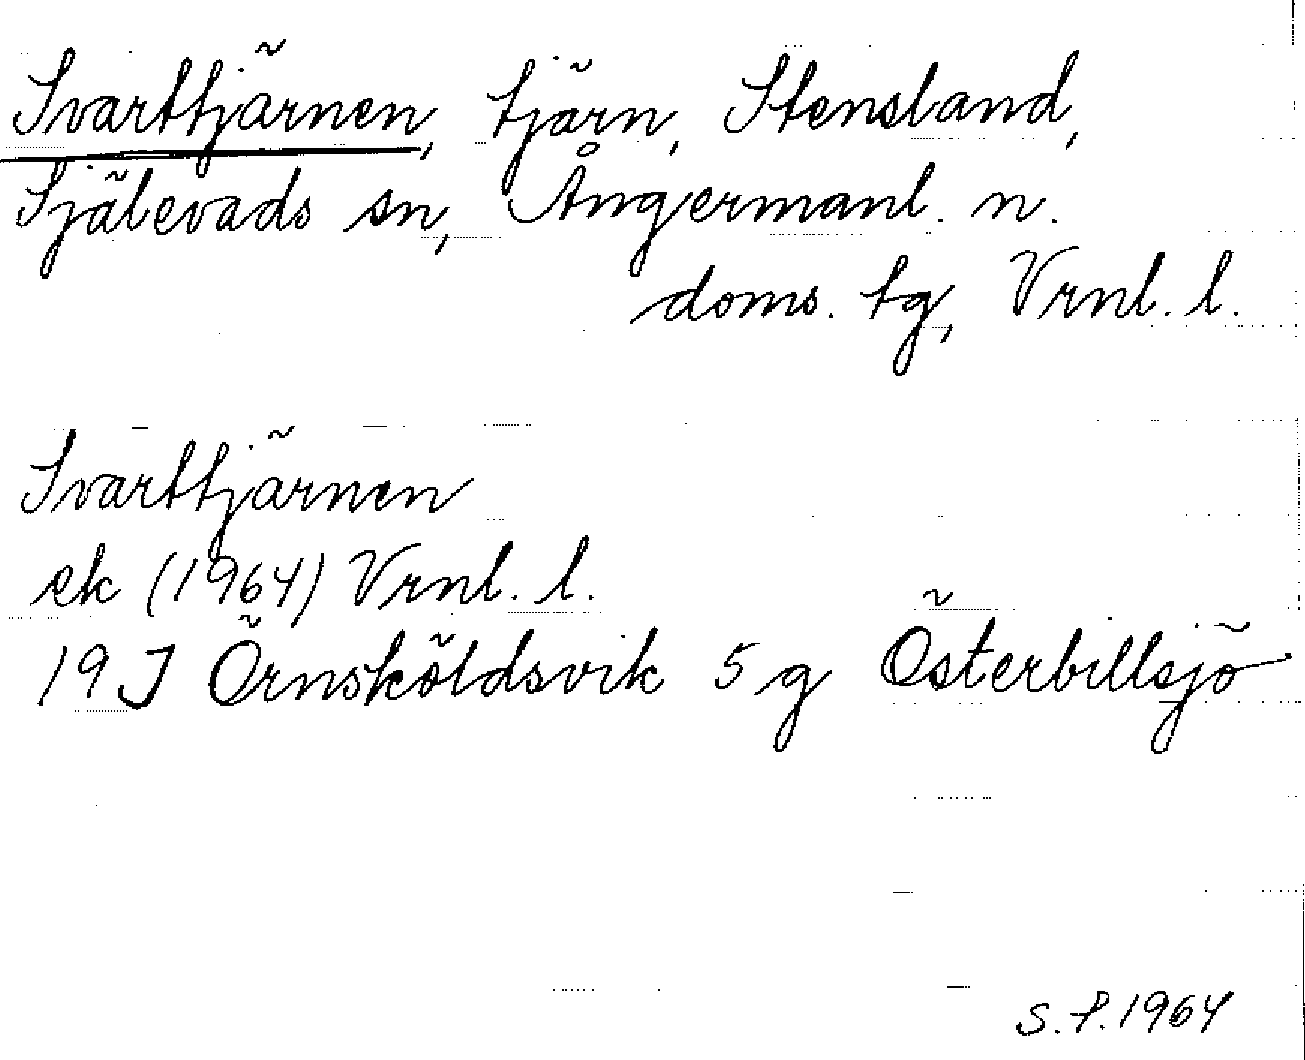 Svarttjärnen, tjärn, Stensland,
Själevads sn, Ångermanl. n.
doms. tg, Vrnl. l.
Svarttjärnen
ek (1964) Vrnl. l.
19 J Örnsköldsvik 5 g Österbillsjö
S. P. 1964